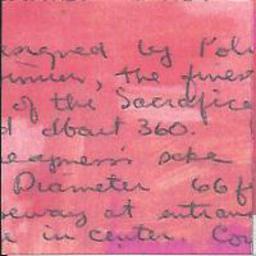 esigned by Poly
, the fines
of the Sacrifice
d about 360.
eapness sake
Diameter 66 f
seway at entran
e in center. Co